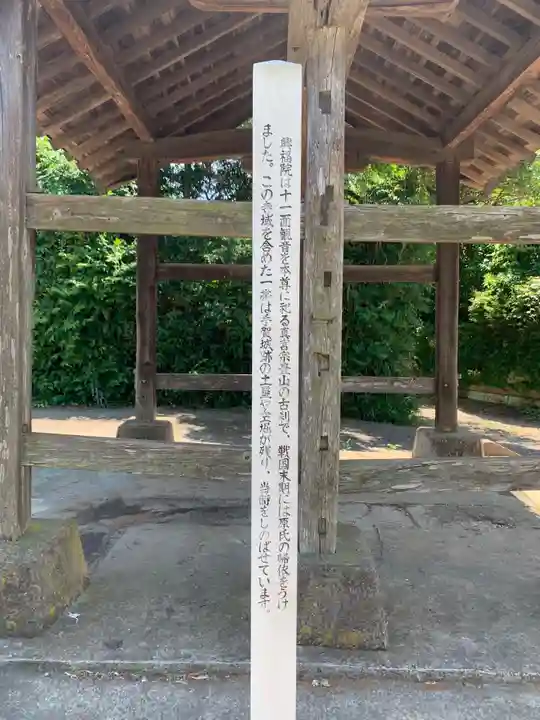 興福院は十一面観音を本尊に祀る真言宗豊山の古刹で、戦国末期には原氏の帰依をうけ
ました。この寺域を含めた一帯は手賀城跡の土塁や空堀が残り、当時をしのばせています。